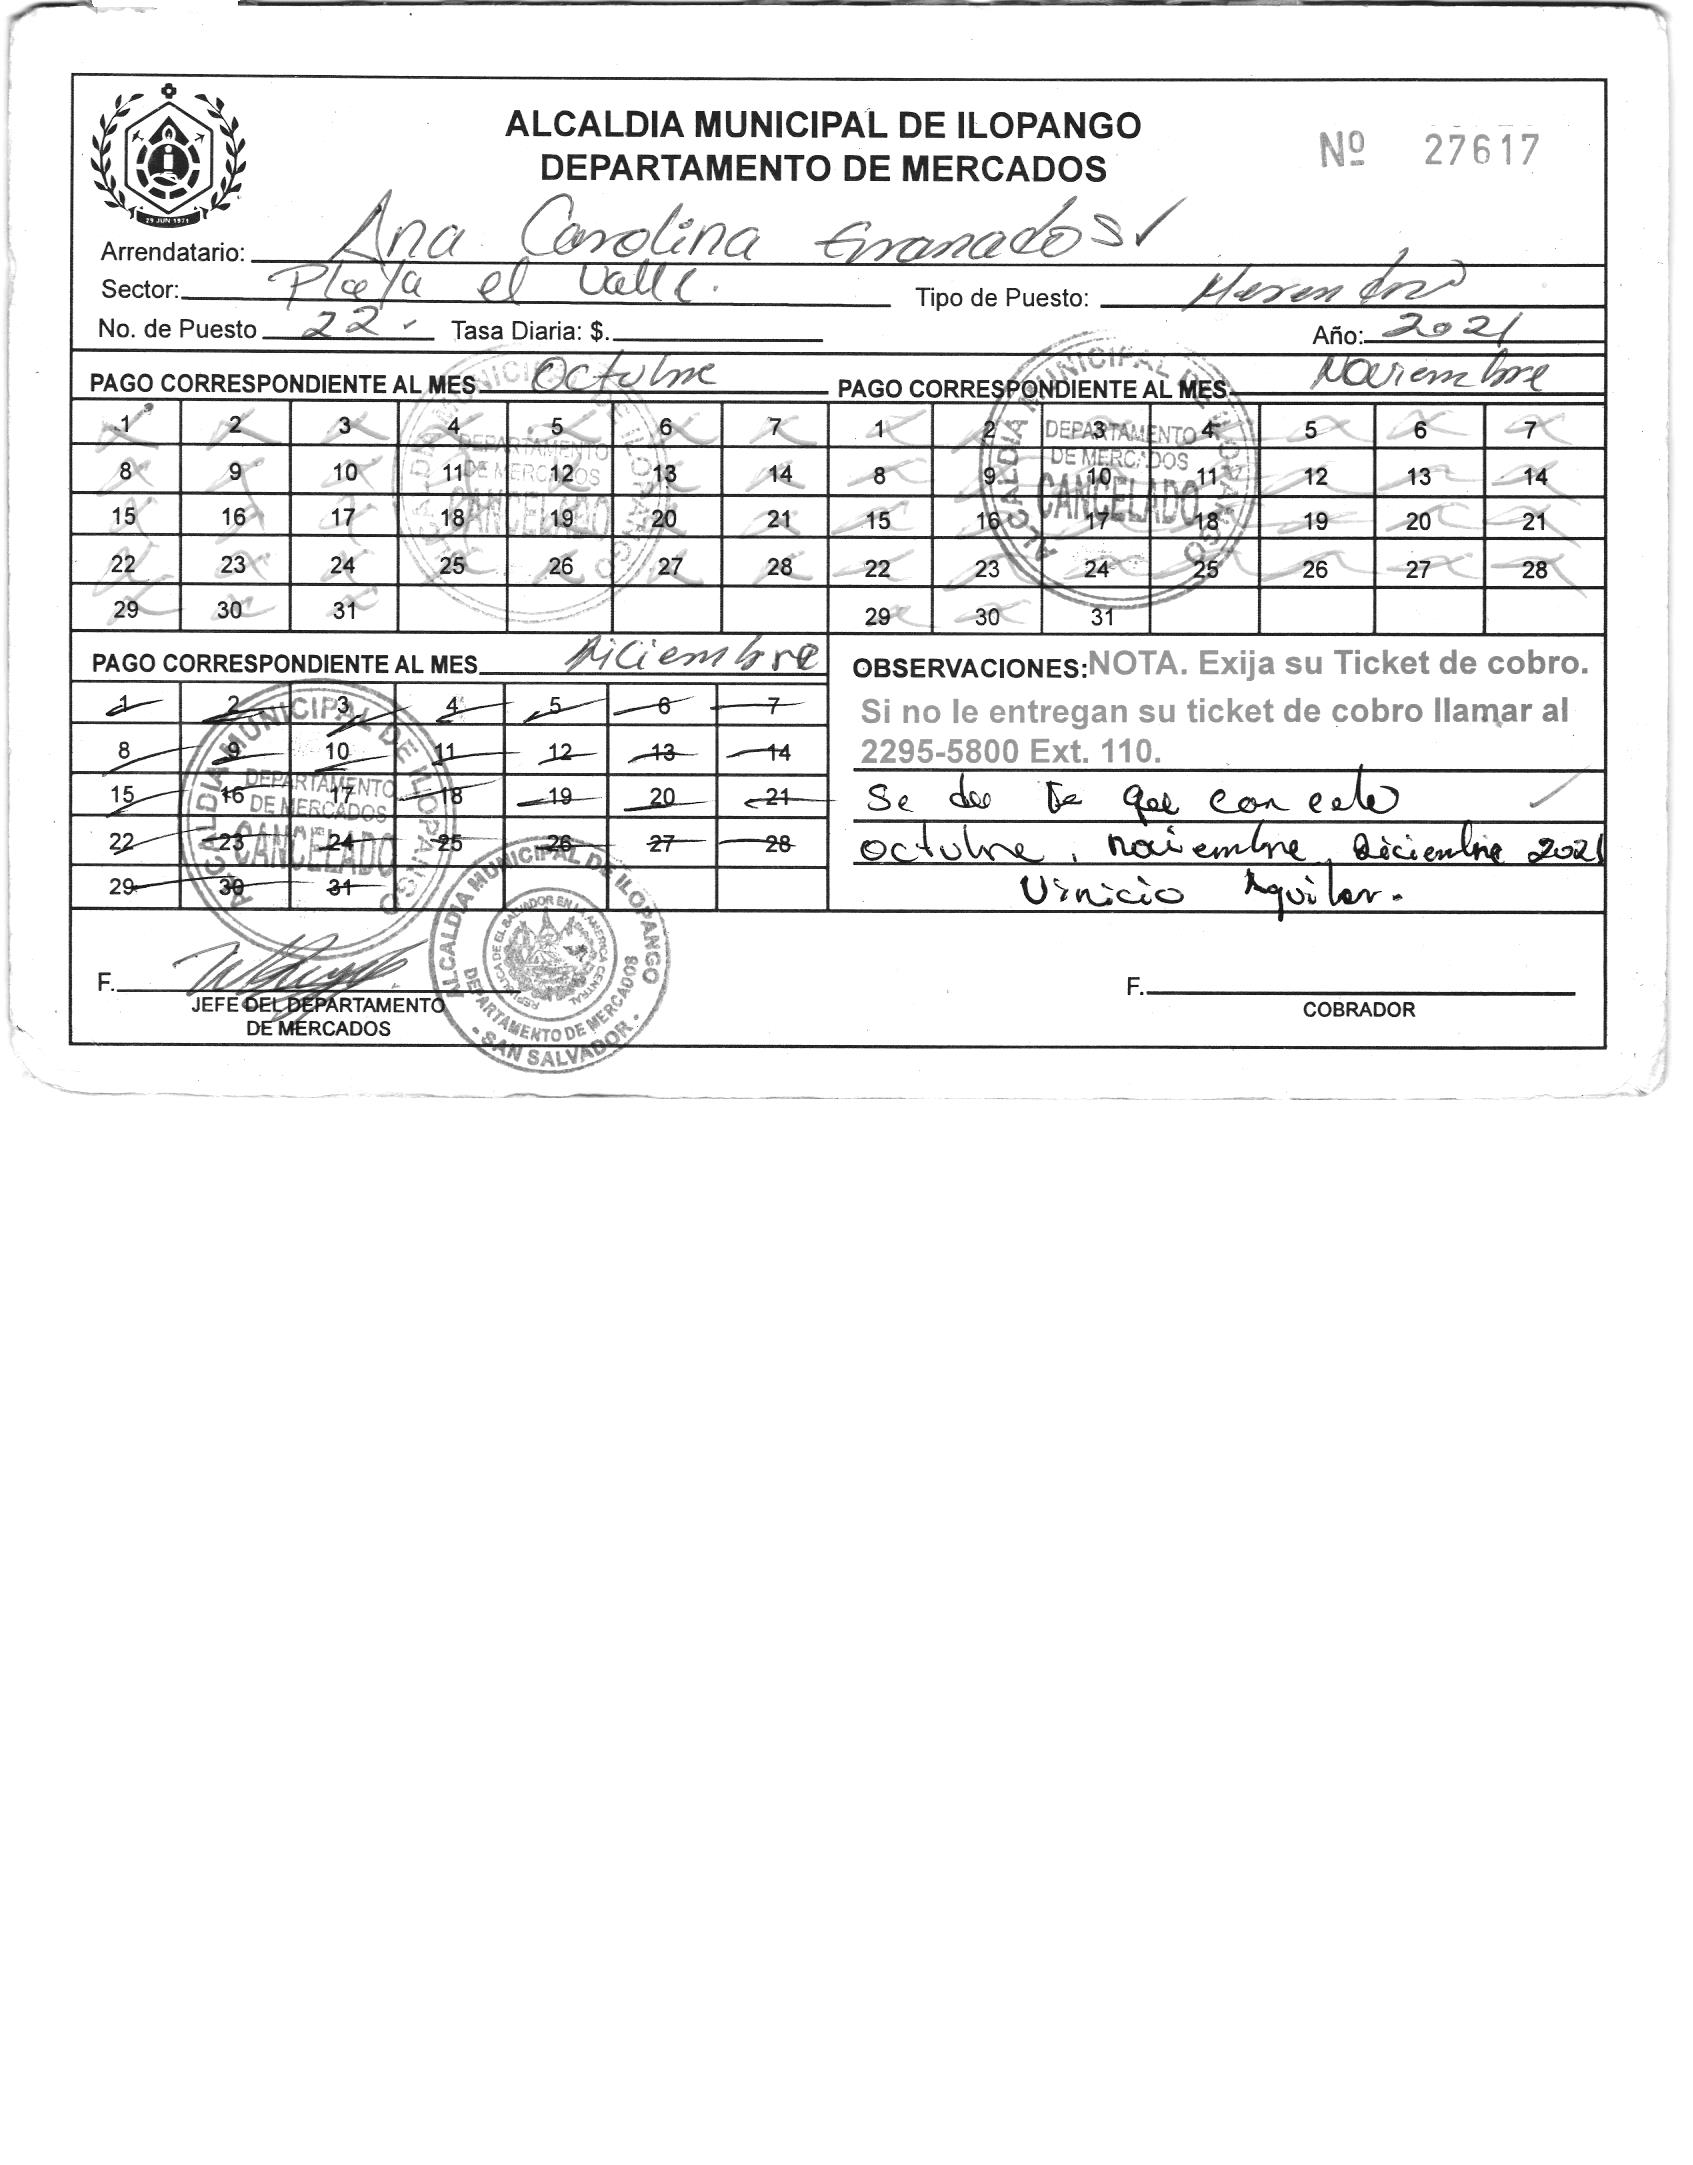 ALCALDIA MUNICIPAL DE ILOPANGO
DEPARTAMENTO DE MERCADOS
Nº 27617
29 JUN 1971
Arrendatario: Ana Carolina Granados
Sector: Playa el Valle.
Tipo de Puesto:
No. de Puesto 22. Tasa Diaria: $.
Año: 2021
PAGO CORRESPONDIENTE AL MES Octubre
1 2 3 4 5 6 7
8 9 10 11 12 13 14
15 16 17 18 19 20 21
22 23 24 25 26 27 28
29 30 31
ALCALDIA MUNICIPAL DE ILOPANGO
DEPARTAMENTO
DE MERCADOS
CANCELADO
PAGO CORRESPONDIENTE AL MES Noviembre
1 2 3 4 5 6 7
8 9 10 11 12 13 14
15 16 17 18 19 20 21
22 23 24 25 26 27 28
29 30 31
ALCALDIA MUNICIPAL DE ILOPANGO
DEPARTAMENTO
DE MERCADOS
CANCELADO
PAGO CORRESPONDIENTE AL MES Diciembre
1 2 3 4 5 6 7
8 9 10 11 12 13 14
15 16 17 18 19 20 21
22 23 24 25 26 27 28
29 30 31
ALCALDIA MUNICIPAL DE ILOPANGO
DEPARTAMENTO
DE MERCADOS
CANCELADO
OBSERVACIONES: NOTA. Exija su Ticket de cobro.
Si no le entregan su ticket de cobro llamar al
2295-5800 Ext. 110.
Se da fe que cancelo
octubre, noviembre, diciembre 2021
Vinicio Aguilar.
F.
JEFE DEL DEPARTAMENTO
DE MERCADOS
ALCALDIA MUNICIPAL DE ILOPANGO
REPUBLICA DE EL SALVADOR EN LA AMERICA CENTRAL
DEPARTAMENTO DE MERCADOS
SAN SALVADOR
F.
COBRADOR